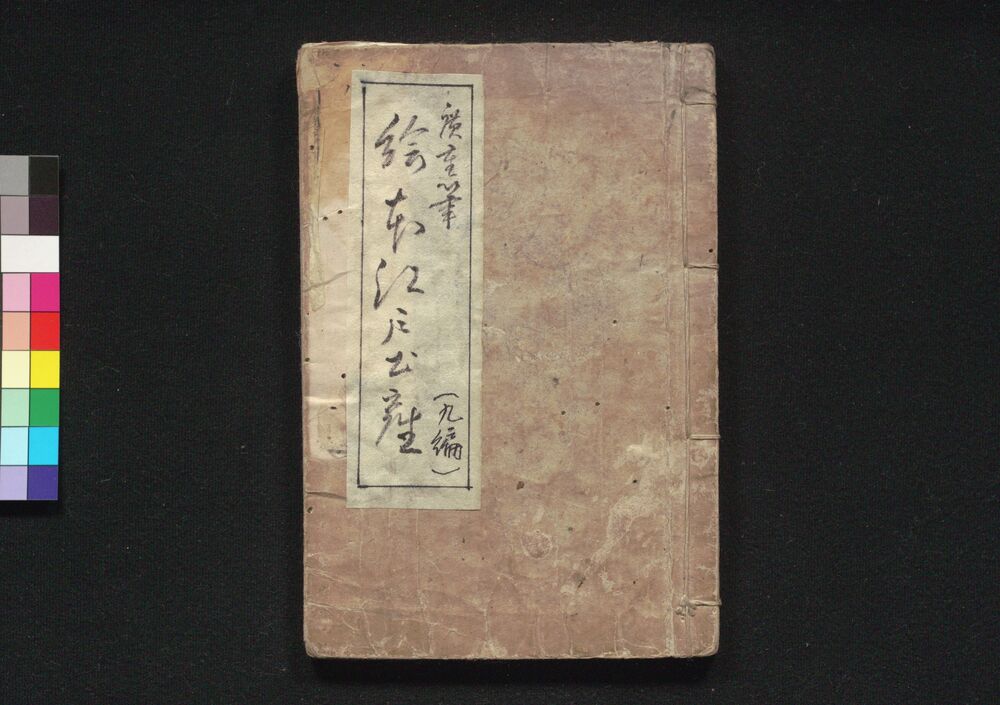 廣重筆
絵本江戸土産
(九編)